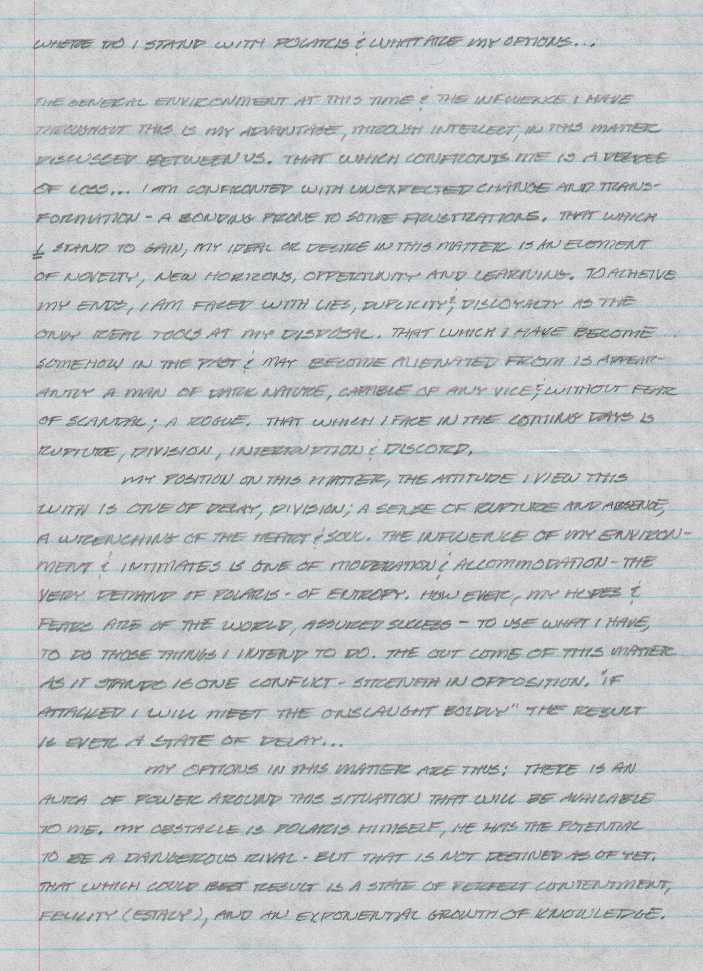 WHERE DO I STAND WITH POLARIS & WHAT ARE MY OPTIONS...
THE GENERAL ENVIRONMENT AT THIS TIME & THE INFLUENCE I HAVE
THROUGHOUT THIS IS MY ADVANTAGE, THROUGH INTELLECT, IN THIS MATTER
DISCUSSED BETWEEN US. THAT WHICH CONFRONTS ME IS A DEGREE
OF LOSS... I AM CONFRONTED WITH UNEXPECTED CHANGE AND TRANS-
FORMATION - A BONDING PRONE TO SOME FRUSTRATIONS. THAT WHICH
I STAND TO GAIN, MY IDEAL OR DESIRE IN THIS MATTER IS AN ELEMENT
OF NOVELTY, NEW HORIZONS, OPPERTUNITY AND LEARNING. TO ACHEIVE
MY ENDS, I AM FACED WITH LIES, DUPLICITY & DISLOYALTY AS THE
ONLY REAL TOOLS AT MY DISPOSAL. THAT WHICH I HAVE BECOME
SOMEHOW IN THE PAST & MAY BECOME ALIENATED FROM IS APPEAR-
ANTLY A MAN OF DARK NATURE, CAPABLE OF ANY VICE & WITHOUT FEAR
OF SCANDAL; A ROGUE. THAT WHICH I FACE IN THE COMING DAYS IS
RUPTURE, DIVISION, INTERRUPTION & DISCORD.
MY POSITION ON THIS MATTER, THE ATTITUDE I VIEW THIS
WITH IS ONE OF DELAY, DIVISION; A SENSE OF RUPTURE AND ABSENCE,
A WRENCHING OF THE HEART & SOUL. THE INFLUENCE OF MY ENVIRON-
MENT & INTIMATES IS ONE OF MODERATION & ACCOMMODATION - THE
VERY DEMAND OF POLARIS - OF ENTROPY. HOW EVER, MY HOPES &
FEARS ARE OF THE WORLD, ASSURED SUCCESS - TO USE WHAT I HAVE,
TO DO THOSE THINGS I INTEND TO DO. THE OUT COME OF THIS MATTER
AS IT STANDS IS ONE CONFLICT - STRENGTH IN OPPOSITION. "IF
ATTACKED I WILL MEET THE ONSLAUGHT BOLDLY" THE RESULT
IS EVER A STATE OF DELAY...
MY OPTIONS IN THIS MATTER ARE THUS: THERE IS AN
AURA OF POWER AROUND THIS SITUATION THAT WILL BE AVAILABLE
TO ME. MY OBSTACLE IS POLARIS HIMSELF, HE HAS THE POTENTIAL
TO BE A DANGEROUS RIVAL - BUT THAT IS NOT DESTINED AS OF YET.
THAT WHICH COULD BEST RESULT IS A STATE OF PERFECT CONTENTMENT,
FELICITY (ESTACY), AND AN EXPONENTIAL GROWTH OF KNOWLEDGE.